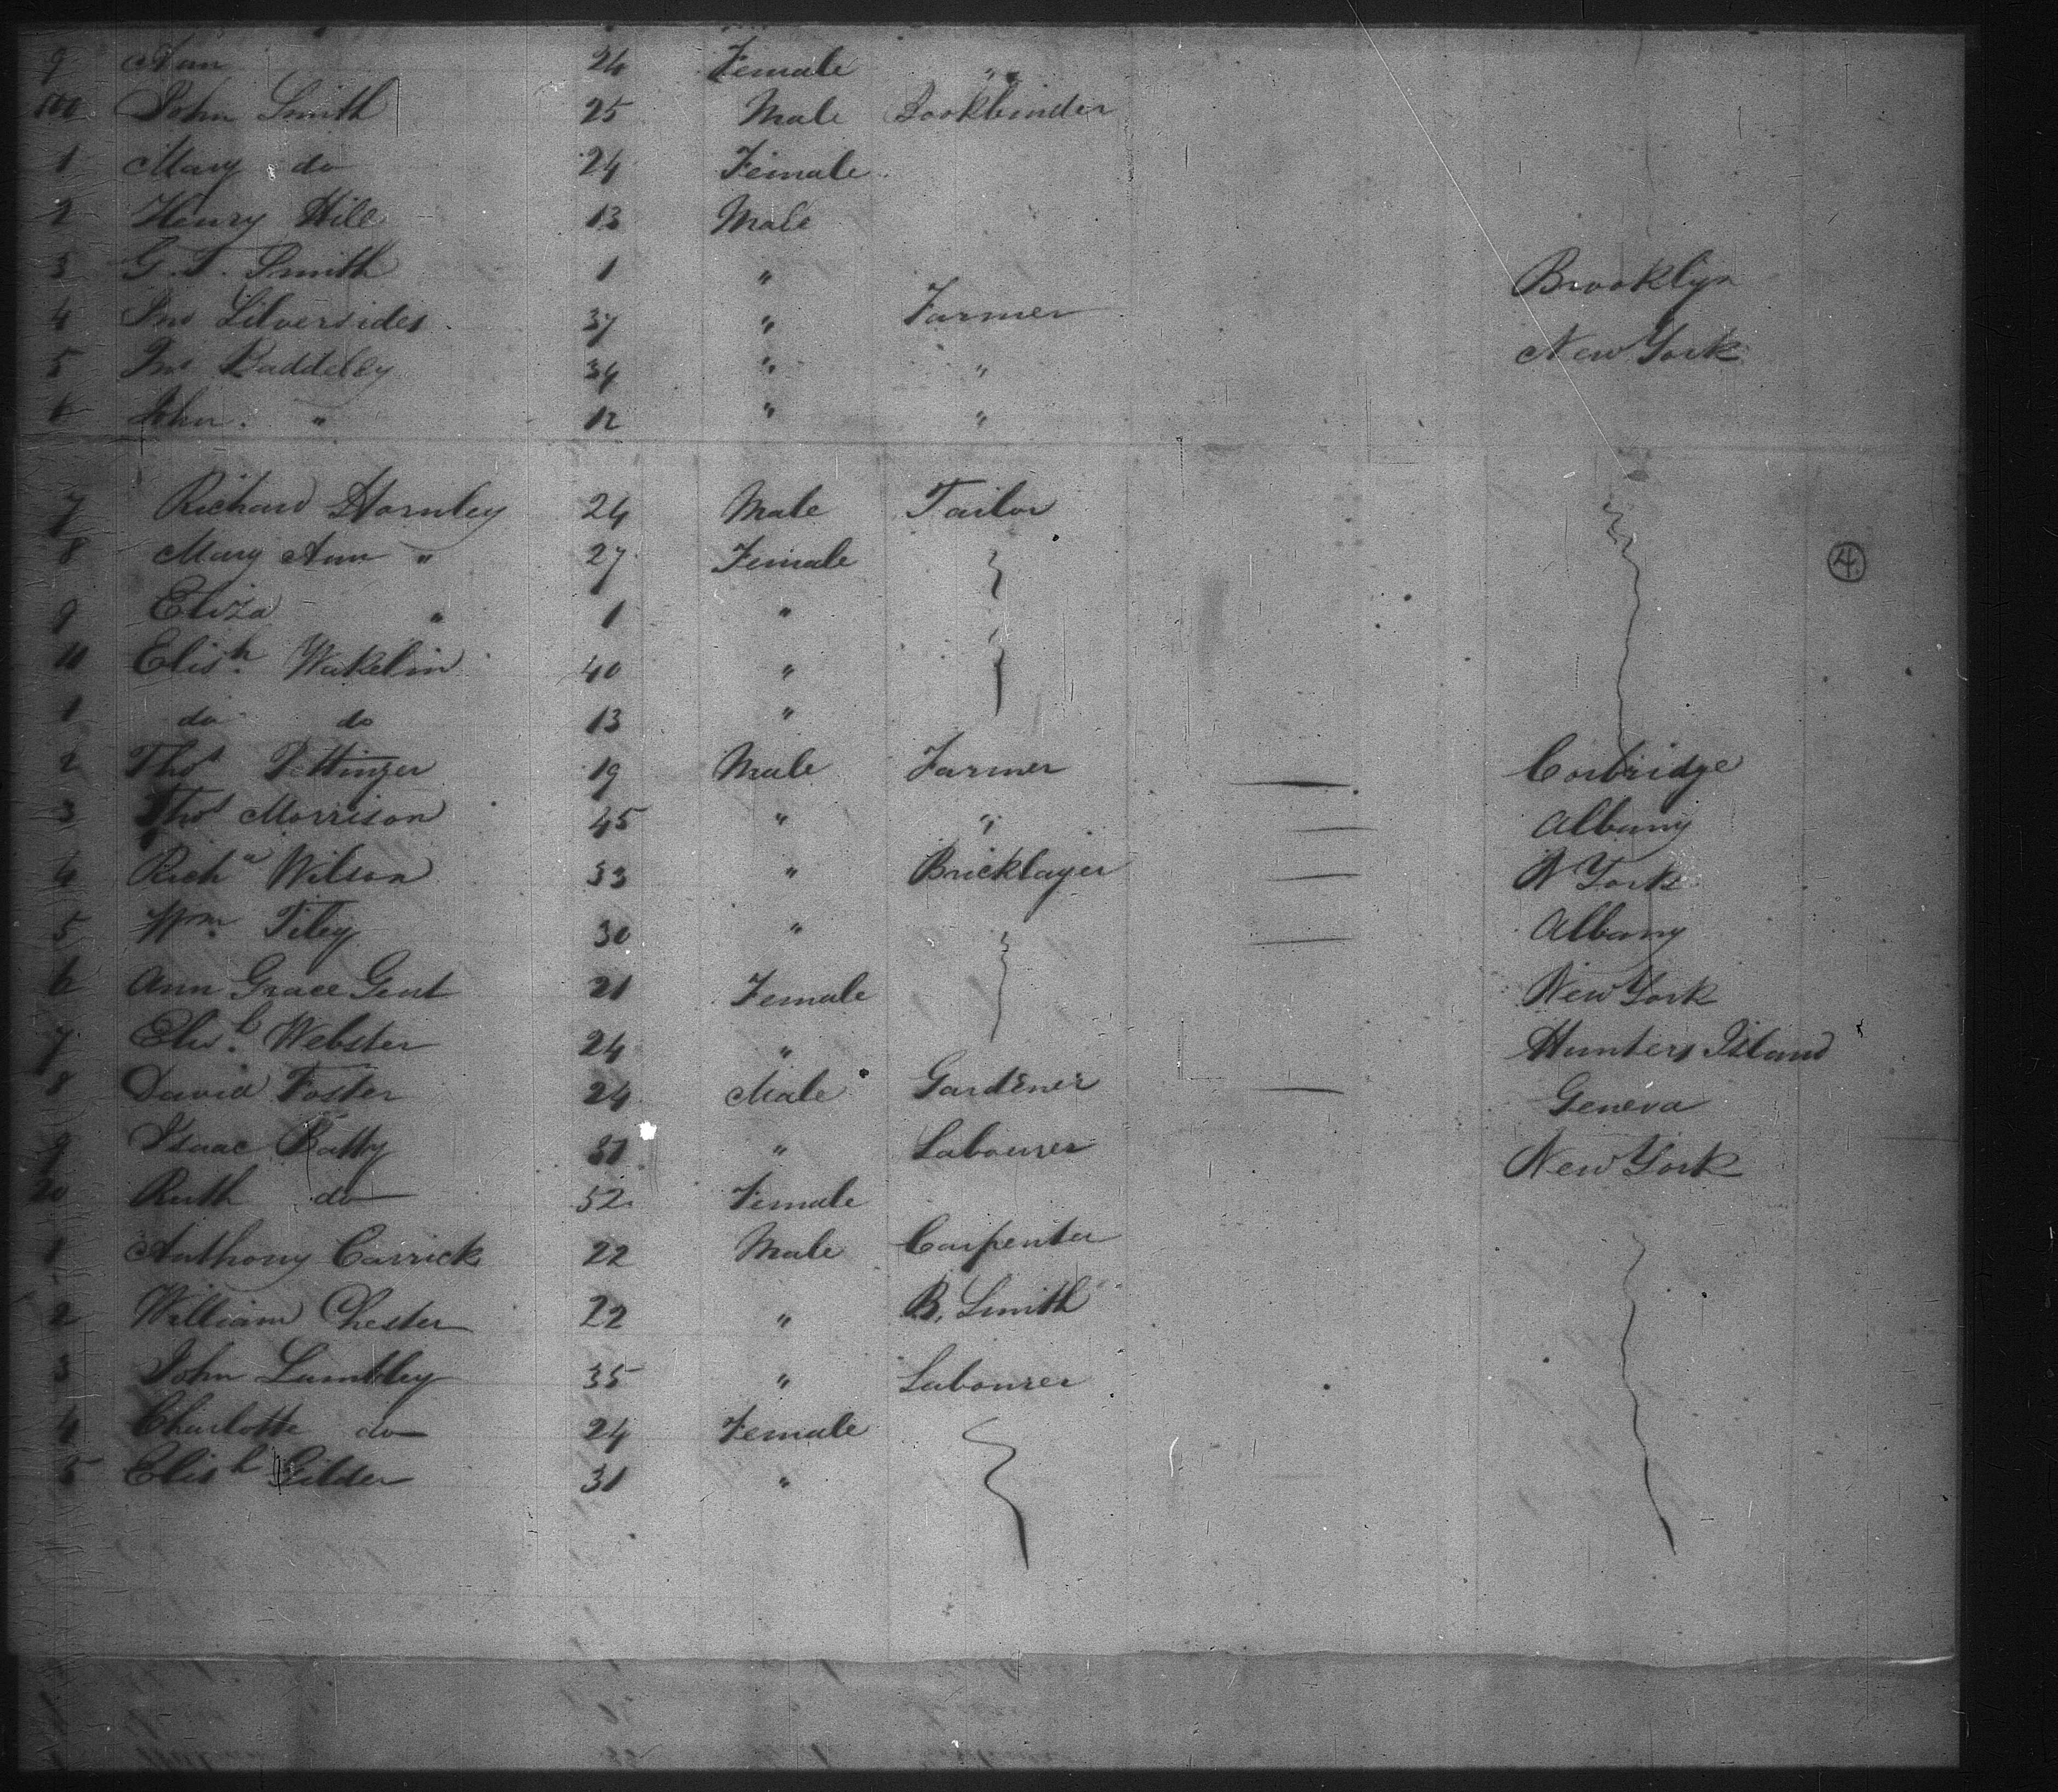 9 Ann 24 Female "
100 John Smith 25 Male Bookbinder
1 Mary do 24 Female
2 Henry Hill 13 Male
3 G. T. Smith 1 " Brooklyn
4 Jno Silversides 37 " Farmer
5 Jno Baddeley 34 " " New York
6 John " 12 " "
7 Richard Hornley 24 Male Tailor
8 Mary Ann " 27 Female
9 Eliza " 1 "
10 Elish. Wakelin 40 "
1 do do 13 "
2 Thos Pettinger 19 Male Farmer — Corbridge
3 Thos Morrison 45 " " — Albany
4 Richd Wilson 33 " Bricklayer — N York
5 Wm. Tiley 30 " — Albany
6 Ann Grace Gent 21 Female New York
7 Elish. Webster 24 " Hunters Island
8 David Foster 24 Male Gardener — Geneva
9 Isaac Batty 51 " Labourer New York
20 Ruth do 52 Female
1 Anthony Carrick 22 Male Carpenter
2 William Chester 22 " B. Smith
3 John Lumbley 35 " Labourer
4 Charlotte do 24 Female
5 Elish Gilder 31 "
4